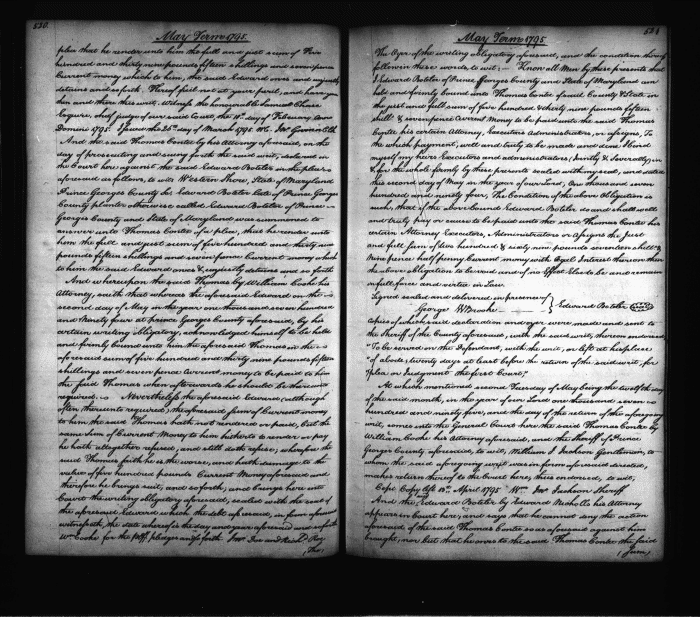 530.
May Term 1795.
plea that he render unto him the full and just sum of Five
hundred and thirty nine pounds fifteen shillings and seven pence
Current money which to him, the said Edward owes and unjustly
detains and so forth, Hereof fail not at your peril, and have you
then and there this writ. Witness the honourable Samuel Chase
Esquire, chief judge of our said Court, the 10th day of February Anno
Domini 1795. Issued the 26th day of March 1795. Jno Gwinn Clk
And the said Thomas Contee by his Attorney aforesaid, on the
day of presenting and suing forth the said writ, declared in
the Court here against the said Edward Boteler in the plea
aforesaid as follows, to wit Western Shore, State of Maryland
Prince Georges County ss Edward Boteler late of Prince Georges
County planter otherwise called Edward Boteler of Prince
Georges County and State of Maryland was summoned to
answer unto Thomas Contee of a plea, that he render unto
him the full and just sum of five hundred and thirty nine
pounds fifteen shillings and seven pence Current money which
to him the said Edward owes & unjustly detains and so forth
And whereupon the said Thomas by William Cooke his
Attorney, saith that whereas the aforesaid Edward on the
second day of May in the year one thousand seven hundred
and Ninety four at prince Georges County aforesaid, by his
certain writing obligatory, acknowledged himself to be held
and firmly bound unto him the aforesaid Thomas in the
aforesaid sum of five hundred and thirty nine pounds fifteen
shillings and seven pence Current money to be paid to him
the said Thomas when afterwards he should be thereunto
required. Nevertheless the aforesaid Edward (although
often thereunto required) the aforesaid sum of Current money
to him the said Thomas hath not rendered or paid, but the
same Sum of Current Money to him hitherto to render or pay
he hath altogether refused, and still doth refuse, wherefore the
said Thomas saith he is the worse, and hath damage to the
value of five hundred pounds Current Money aforesaid and
therefore he brings suit, and so forth, and brings here into
Court the writing obligatory aforesaid, sealed with the seal of
the aforesaid Edward which the debt aforesaid, in form aforesaid
witnesseth, the date whereof is the day and year aforesaid and so forth
Wm Cooke for the Plff, pledges and so forth Jno Doe and Richd Roe
(The)
531
May Term 1795.
The Oyer of the writing obligatory aforesaid, and the condition thereof
follow in these words to wit; Know all Men by these presents that
I Edward Boteler of Prince Georges County and State of Maryland am
held and firmly bound unto Thomas Contee of said County & State in
the just and full sum of five hundred & thirty nine pounds fifteen
shill: & seven pence Current Money to be paid unto the said Thomas
Contee his certain Attorney, Executors Administrators, or assigns, To
the which payment, well and truly to be made and done I bind
myself my heirs Executors and administrators (Jointly & Severally) in
& for the whole firmly by these presents sealed with my seal, and dated
this second day of May in the year of our Lord, One thousand seven
hundred and ninety four, The Condition of the above Obligation is
such, that if the above bound Edward Boteler do and shall well
and truly pay or cause to be paid unto the said Thomas Contee his
certain Attorney Executors, Administrators or Assigns the Just
and full sum of two hundred & sixty nine pounds seventeen shill: &
Nine pence half penny Current money with Legal Interest thereon then
the above obligation to be void and of no Effect Else to be and remain
in full force and virtue in Law
Signed sealed and delivered in presence of } Edward Boteler
George W Brooke
copies of which said declaration and oyer were made and sent to
the Sheriff of the County aforesaid, with the said writ, thereon endorsed,
"To be served on the Defendant, with the writ, or left at his place
"of abode, twenty days at least before the return of the said writ, for
"plea or Judgment the first Court."
At which mentioned second Tuesday of May being the twelfth day
of the said month, in the year of our Lord one thousand seven
hundred and ninety five, and the day of the return of the aforegoing
writ, comes unto the General Court here the said Thomas Contee by
William Cooke his Attorney aforesaid, and the sheriff of Prince
Georges County aforesaid, to wit, William J Jackson Gentleman, to
whom the said aforegoing writ was in form aforesaid directed,
makes return thereof to the Court here, thus endorsed, to wit,
Cepi Copy left 18th April 1795 Wm Jno Jackson Sheriff
And the Edward Boteler by Edward Nicholls his Attorney
appears in Court here, and says that he cannot deny the action
aforesaid of the said Thomas Contee so as aforesaid against him
brought, nor but that he owes to the said Thomas Contee the said
(Sum)